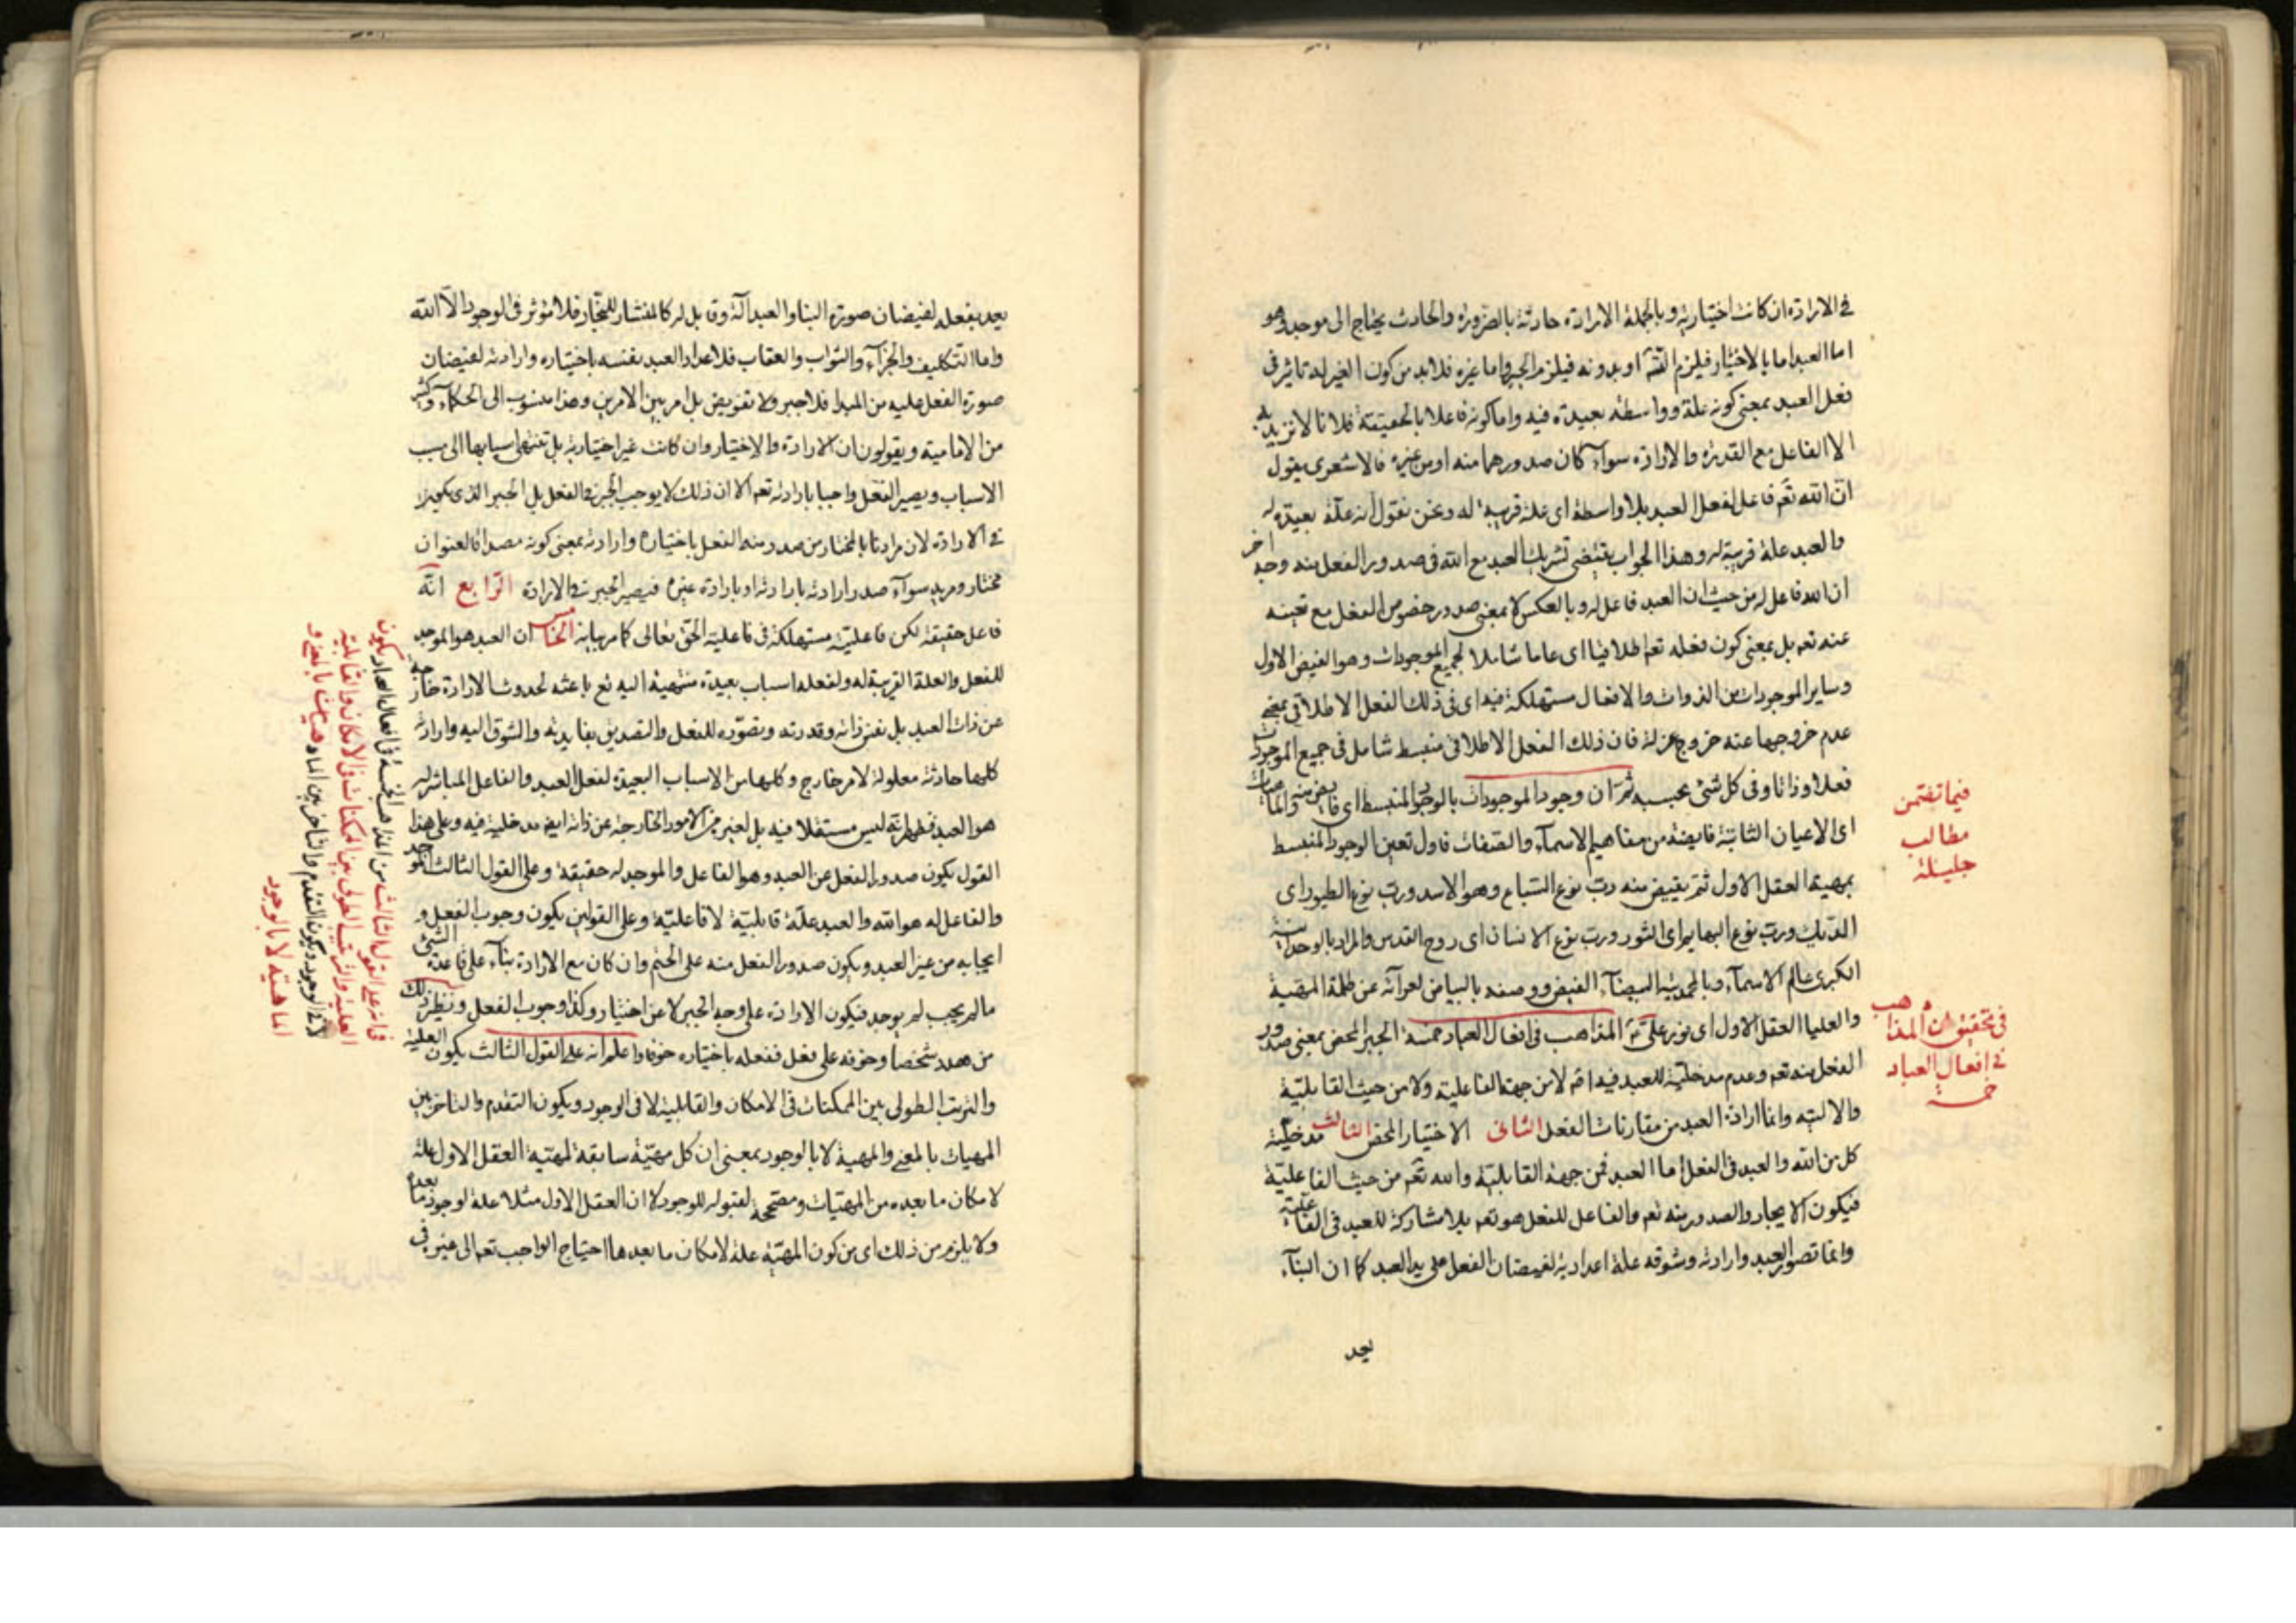 في الارادة ان كانت اختيارية وبالجملة الارادة حادثة بالضرورة والحادث يحتاج الى موجد وهو
اما العبد اما بالاختيار فيلزم التس او بدونه فيلزم الجبر واما غيره فلابد من كون الغير له تاثير في
فعل العبد بمعنى كونه علة وواسطة بعيدة فيه واما كونه فاعلا بالحقيقة فلا نا لا نريد به
الا الفاعل مع القدرة والارادة سواء كان صدورهما منه او من غيره فالاشعرى يقول
ان الله تعم فاعل لفعل العبد بلا واسطة اى علة قريبة له ونحن نقول انه علة بعيدة له
والعبد علة قريبة له وهذا الجواب يقتضى تشريك العبد مع الله في صدور الفعل منه وجه اخر
ان الله فاعل له من حيث ان العبد فاعل له وبالعكس لا بمعنى صدور خصوص الفعل مع تعينه
عنه تعم بل بمعنى كون فعله تعم اطلاقيا اى عاما شاملا لجميع الموجودات وهو الفيض الاول
وساير الموجودات من الذوات والافعال مستهلكة فيه اى في ذلك الفعل الاطلاقى بمعنى
عدم خروجها عنه خروج عزلة فان ذلك الفعل الاطلاقى منبسط شامل في جميع الموجودات
فعلا وذاتا وفى كل شئ بحسبه ثم ان وجود الموجودات بالوجود المنبسط اى فايض منه والماهيات
اى الاعيان الثابتة فايضة من مفاهيم الاسماء والصفات فاول تعين الوجود المنبسط
بمهية العقل الاول ثم يفيض منه رب نوع السباع وهو الاسد ورب نوع الطيور اى
الديك ورب نوع البهايم اى الثور ورب نوع الانسان اى روح القدس والمراد بالوحدانية
الكبرى عالم الاسماء وبالمحمدية البيضاء الفيض ووصفه بالبياض لعرائه عن ظلمة المهية
والعليا العقل الاول اى نور على تم المذاهب في افعال العباد خمسة الجبر المحض بمعنى صدور
الفعل منه تعم وعدم مدخلية للعبد فيه اقم لا من جهة الفاعلية ولا من حيث القابلية
والالية وانما ارادة العبد من مقارنات الفعل الثانى الاختيار المحض الثالث مدخلية
كل من الله والعبد في الفعل اما العبد فمن جهة القابلية والله تعم من حيث الفاعلية
فيكون الايجاد والصدور منه تعم والفاعل للفعل هو تعم بلا مشاركة للعبد في الفاعلية
وانما تصور العبد وارادته وشوقه علة اعدادية لفيضان الفعل على يد العبد كما ان البناء
يعد
فيما تضمن
مطالب
جليلة
في تحقيق ان المذاهب
في افعال العباد
خمسة
يعد بفعله لفيضان صورة البنا والعبد آلة وقابل له كالمنشار للنجار فلا مؤثر في الوجود الا الله
واما التكليف والجزاء والثواب والعقاب فلاعداد العبد بنفسه باختياره وارادته لفيضان
صورة الفعل عليه من المبدا فلا جبر ولا تفويض بل امر بين الامرين وهذا منسوب الى الحكماء وكثير
من الامامية ويقولون ان الارادة والاختيار وان كانت غير اختيارية بل تنتهى اسبابها الى سبب
الاسباب ويصير الفعل واجبا بارادته تعم الا ان ذلك لا يوجب الجبر في الفعل بل الجبر الذى يكون
في الارادة لان مرادنا بالمختار من صدر منه الفعل باختياره وارادته بمعنى كونه مصداقا لعنوان
مختار ومريد سواء صدر ارادته بارادته او بارادة غيره فيصير الجبر في الارادة الرابع انه
فاعل حقيقة لكن فاعليته مستهلكة في فاعلية الحق تعالى كما مر بيانه الخامس ان العبد هو الموجد
للفعل والعلة القريبة له ولفعله اسباب بعيدة منتهية اليه تع باعثة لحدوث الارادة خارجة
عن ذات العبد بل نفس ذاته وقدرته وتصوره للفعل والتصديق بفايدته والشوق اليه وارادته
كلها حادثة معلولة لامر خارج وكلها من الاسباب البعيدة لفعل العبد والفاعل المباشر له
هو العبد فظهر انه ليس مستقلا فيه بل لغيره من الامور الخارجة عن ذاته ايض مدخلية فيه وعلى هذا
القول يكون صدور الفعل عن العبد وهو الفاعل والموجد له حقيقة وعلى القول الثالث الموجد
والفاعل له هو الله والعبد علة قابلية لا فاعلية وعلى القولين يكون وجوب الفعل و
ايجابه من غير العبد ويكون صدور الفعل منه على الحتم وان كان مع الارادة بناء على قاعدة الشئ
ما لم يجب لم يوجد فيكون الارادة على وجه الجبر لا عن اختيار وكذا وجوب الفعل ونظير ذلك
من هدد شخصا وخوفه على فعل ففعله باختياره خوفا واعلم انه على القول الثالث يكون العلية
والترتب الطولى بين الممكنات في الامكان والقابلية لا في الوجود ويكون التقدم والتاخر بين
المهيات بالمعنى والمهية لا بالوجود بمعنى ان كل مهية سابقة لمهية العقل الاول علة
لامكان ما بعده من المهيات ومصححة لقبوله للوجود لا ان العقل الاول مثلا علة لوجود ما بعده
ولا يلزم من ذلك اى من كون المهية علة لامكان ما بعدها احتياج الواجب تعم الى غيره في
على القول الثالث من المذاهب الخمسة في افعال العباد يكون
العلية والترتيب الطولى بين الممكنات في الامكان والقابلية
لا في الوجود ويكون التقدم والتاخر بين المهيات بالمعنى و
الماهية لا بالوجود